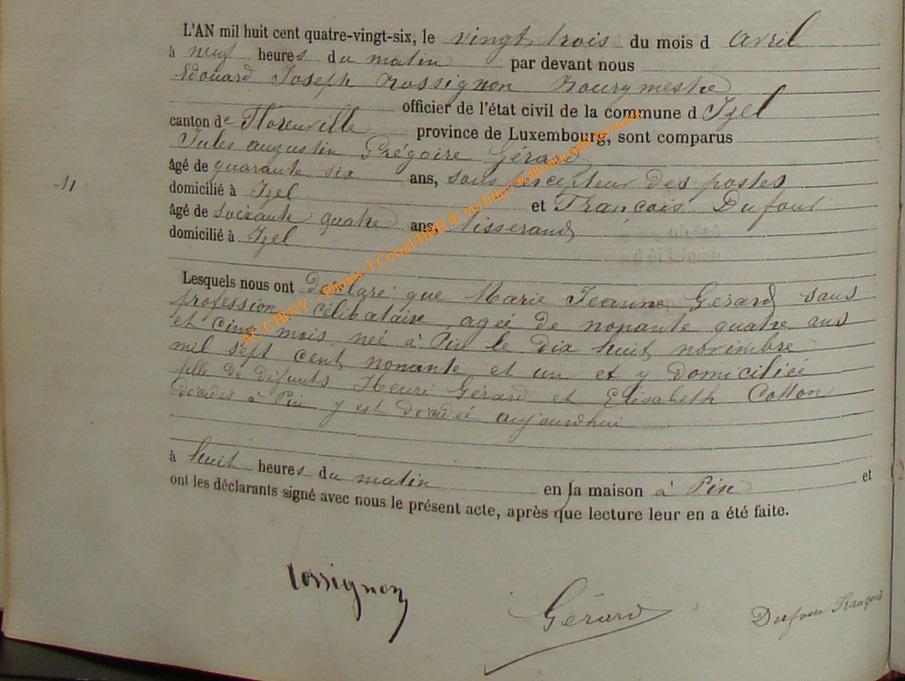 L'AN mil huit cent quatre-vingt-six, le vingt trois du mois d avril
à neuf heures du matin par devant nous
Edouard Joseph Rossignon Bourgmestre
officier de l'état civil de la commune d Izel
canton de Florenville province de Luxembourg, sont comparus
Jules augustin Grégoire Gérard
âgé de quarante six ans, sous percepteur des postes
domicilié à Izel et François Dufour
11
âgé de soixante quatre ans, tisserand
domicilié à Izel
Lesquels nous ont déclaré que Marie Jeanne Gérard sans
profession célibataire, agée de nonante quatre ans
et cinq mois, née à Pin le dix huit novembre
mil sept cent nonante et un et y domiciliée
fille de défunts Henri Gérard et Elisabeth Cotton
décédés à Pin y est décédée aujourdhui
à huit heures du matin en la maison à Pin et
ont les déclarants signé avec nous le présent acte, après que lecture leur en a été faite.
Rossignon
Gérard
Dufour François
AC CHINY - Photos J.Cornil